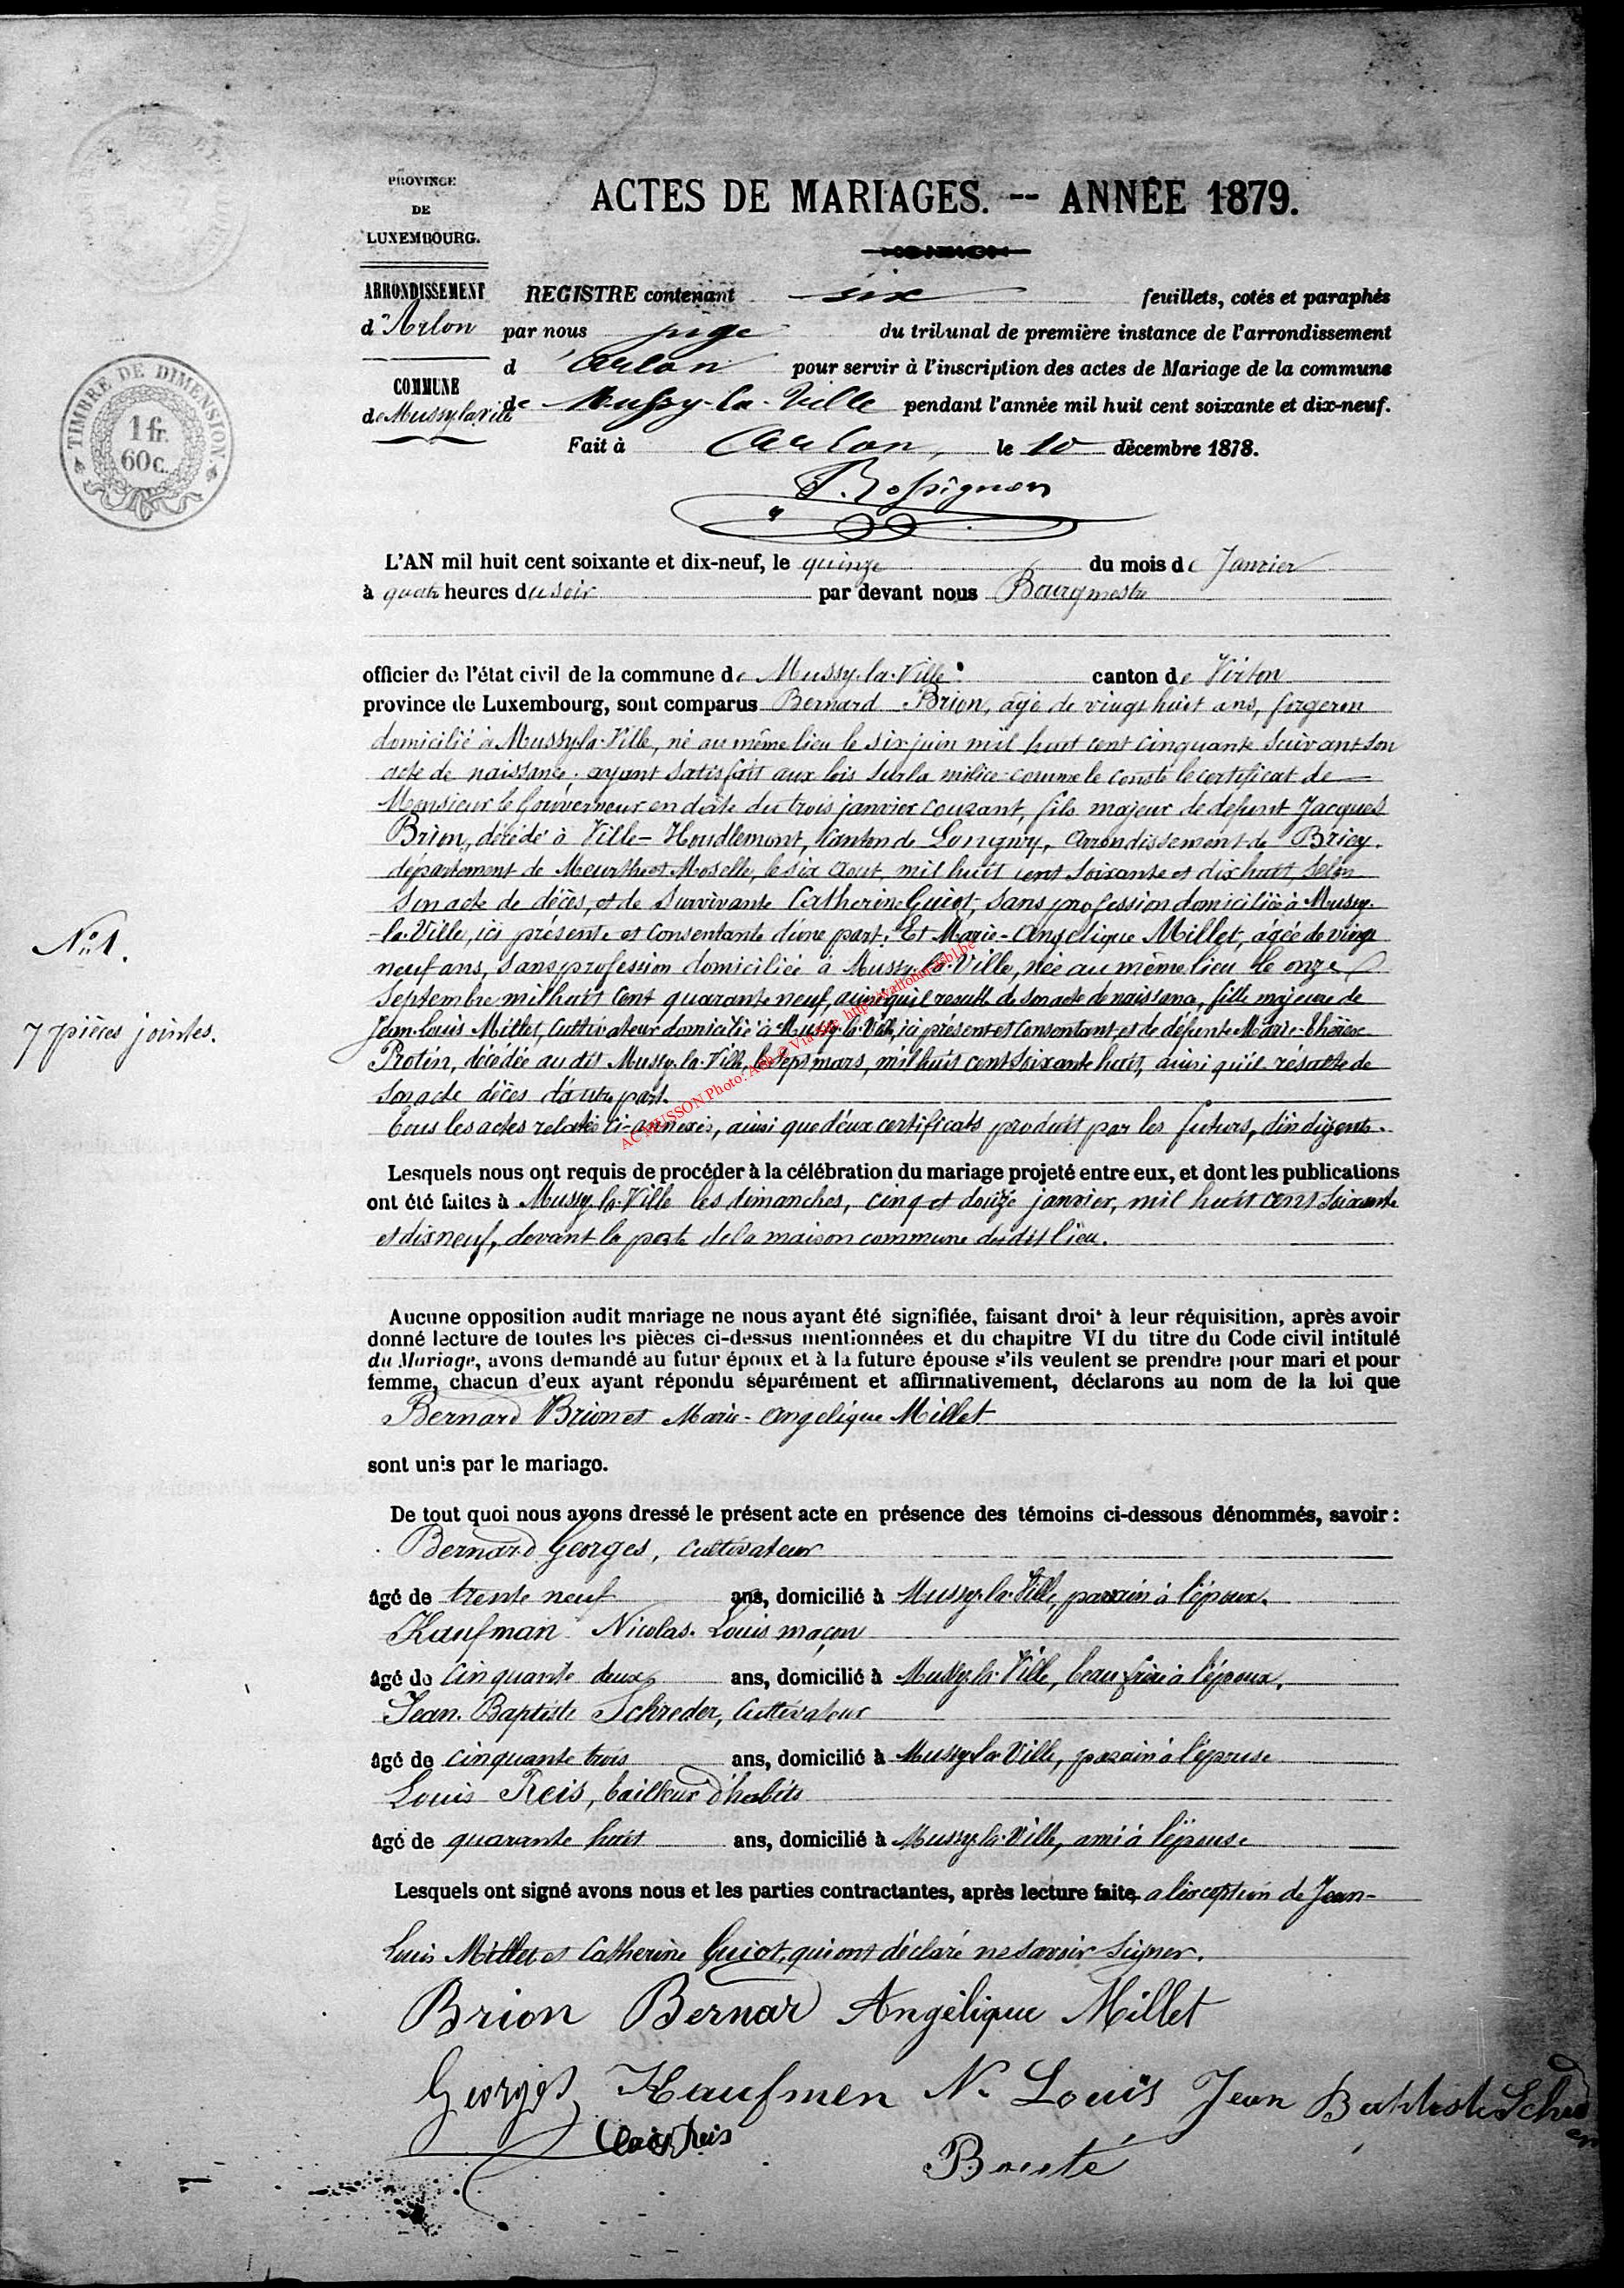 PROVINCE
DE
LUXEMBOURG.
ACTES DE MARIAGES. -- ANNÉE 1879.
ARRONDISSEMENT
d'Arlon
COMMUNE
de Mussy la ville
TIMBRE DE DIMENSION
1 fr.
60 c.
REGISTRE contenant six feuillets, cotés et paraphés
par nous juge du tribunal de première instance de l'arrondissement
d'Arlon pour servir à l'inscription des actes de Mariage de la commune
de Mussy-la-Ville pendant l'année mil huit cent soixante et dix-neuf.
Fait à Arlon, le 10 décembre 1878.
L'AN mil huit cent soixante et dix-neuf, le quinze du mois de Janvier
à quatre heures du soir par devant nous Bourgmestre
officier de l'état civil de la commune de Mussy-la-Ville canton de Virton
province de Luxembourg, sont comparus Bernard Brion, âgé de vingt huit ans, forgeron
domicilié à Mussy-la-Ville, né au même lieu le six juin mil huit cent cinquante suivant son
acte de naissance. ayant satisfait aux lois sur la milice comme le conste le certificat de
Monsieur le Gouverneur en date du trois janvier courant, fils majeur de defunt Jacques
Brion, décédé à Ville-Houdlemont, Canton de Longwy, Arrondissement de Briey.
département de Meurthe et Moselle, le six Aout, mil huit cent soixante et dix huit, selon
son acte de décès, et de survivante Catherine Guiot, sans profession domiciliée à Mussy-
-la-Ville, ici présente et consentante d'une part. Et Marie-Angelique Millet, âgée de vingt
N° 1.
neuf ans, sans profession domiciliée à Mussy-la-Ville, née au même lieu le onze
Septembre mil huit cent quarante neuf, ainsi qu'il resulte de son acte de naissance, fille majeure de
7 pièces jointes.
Jean-Louis Millet, Cultivateur domicilié à Mussy-la-Ville, ici présent et consentant, et de défunte Marie-Thérèse
Protin, décédée au dit Mussy-la-Ville, le sept mars, mil huit cent soixante huit, ainsi qu'il résulte de
son acte décès d'autre part.
Tous les actes relatés ci-annexés, ainsi que deux certificats produit par les futurs, d'indigents.
AC MUSSON Photo:
Lesquels nous ont requis de procéder à la célébration du mariage projeté entre eux, et dont les publications
ont été faites à Mussy-la-Ville les dimanches, cinq et douze janvier, mil huit cent soixante
et dix neuf, devant la porte de la maison commune du dit lieu.
Aucune opposition audit mariage ne nous ayant été signifiée, faisant droit à leur réquisition, après avoir
donné lecture de toutes les pièces ci-dessus mentionnées et du chapitre VI du titre du Code civil intitulé
du Mariage, avons demandé au futur époux et à la future épouse s'ils veulent se prendre pour mari et pour
femme, chacun d'eux ayant répondu séparément et affirmativement, déclarons au nom de la loi que
Bernard Brion et Marie-Angelique Millet
sont unis par le mariage.
De tout quoi nous avons dressé le présent acte en présence des témoins ci-dessous dénommés, savoir :
Bernard Georges, cultivateur
âgé de trente neuf ans, domicilié à Mussy-la-Ville, parrain à l'époux.
Kaufman Nicolas-Louis maçon
âgé de cinquante deux ans, domicilié à Mussy-la-Ville, beau frère à l'époux.
Jean-Baptiste Schreder, Cultivateur
âgé de cinquante trois ans, domicilié à Mussy-la-Ville, parain à l'épouse
Louis Reis, tailleur d'habits
âgé de quarante huit ans, domicilié à Mussy-la-Ville, ami à l'épouse
Lesquels ont signé avons nous et les parties contractantes, après lecture faite, a l'exception de Jean-
Louis Millet et Catherine Guiot, qui ont déclaré ne savoir signer.
Brion Bernard Angélique Millet
Georges Kaufmen N. Louis Jean Baptiste
Louis Reis